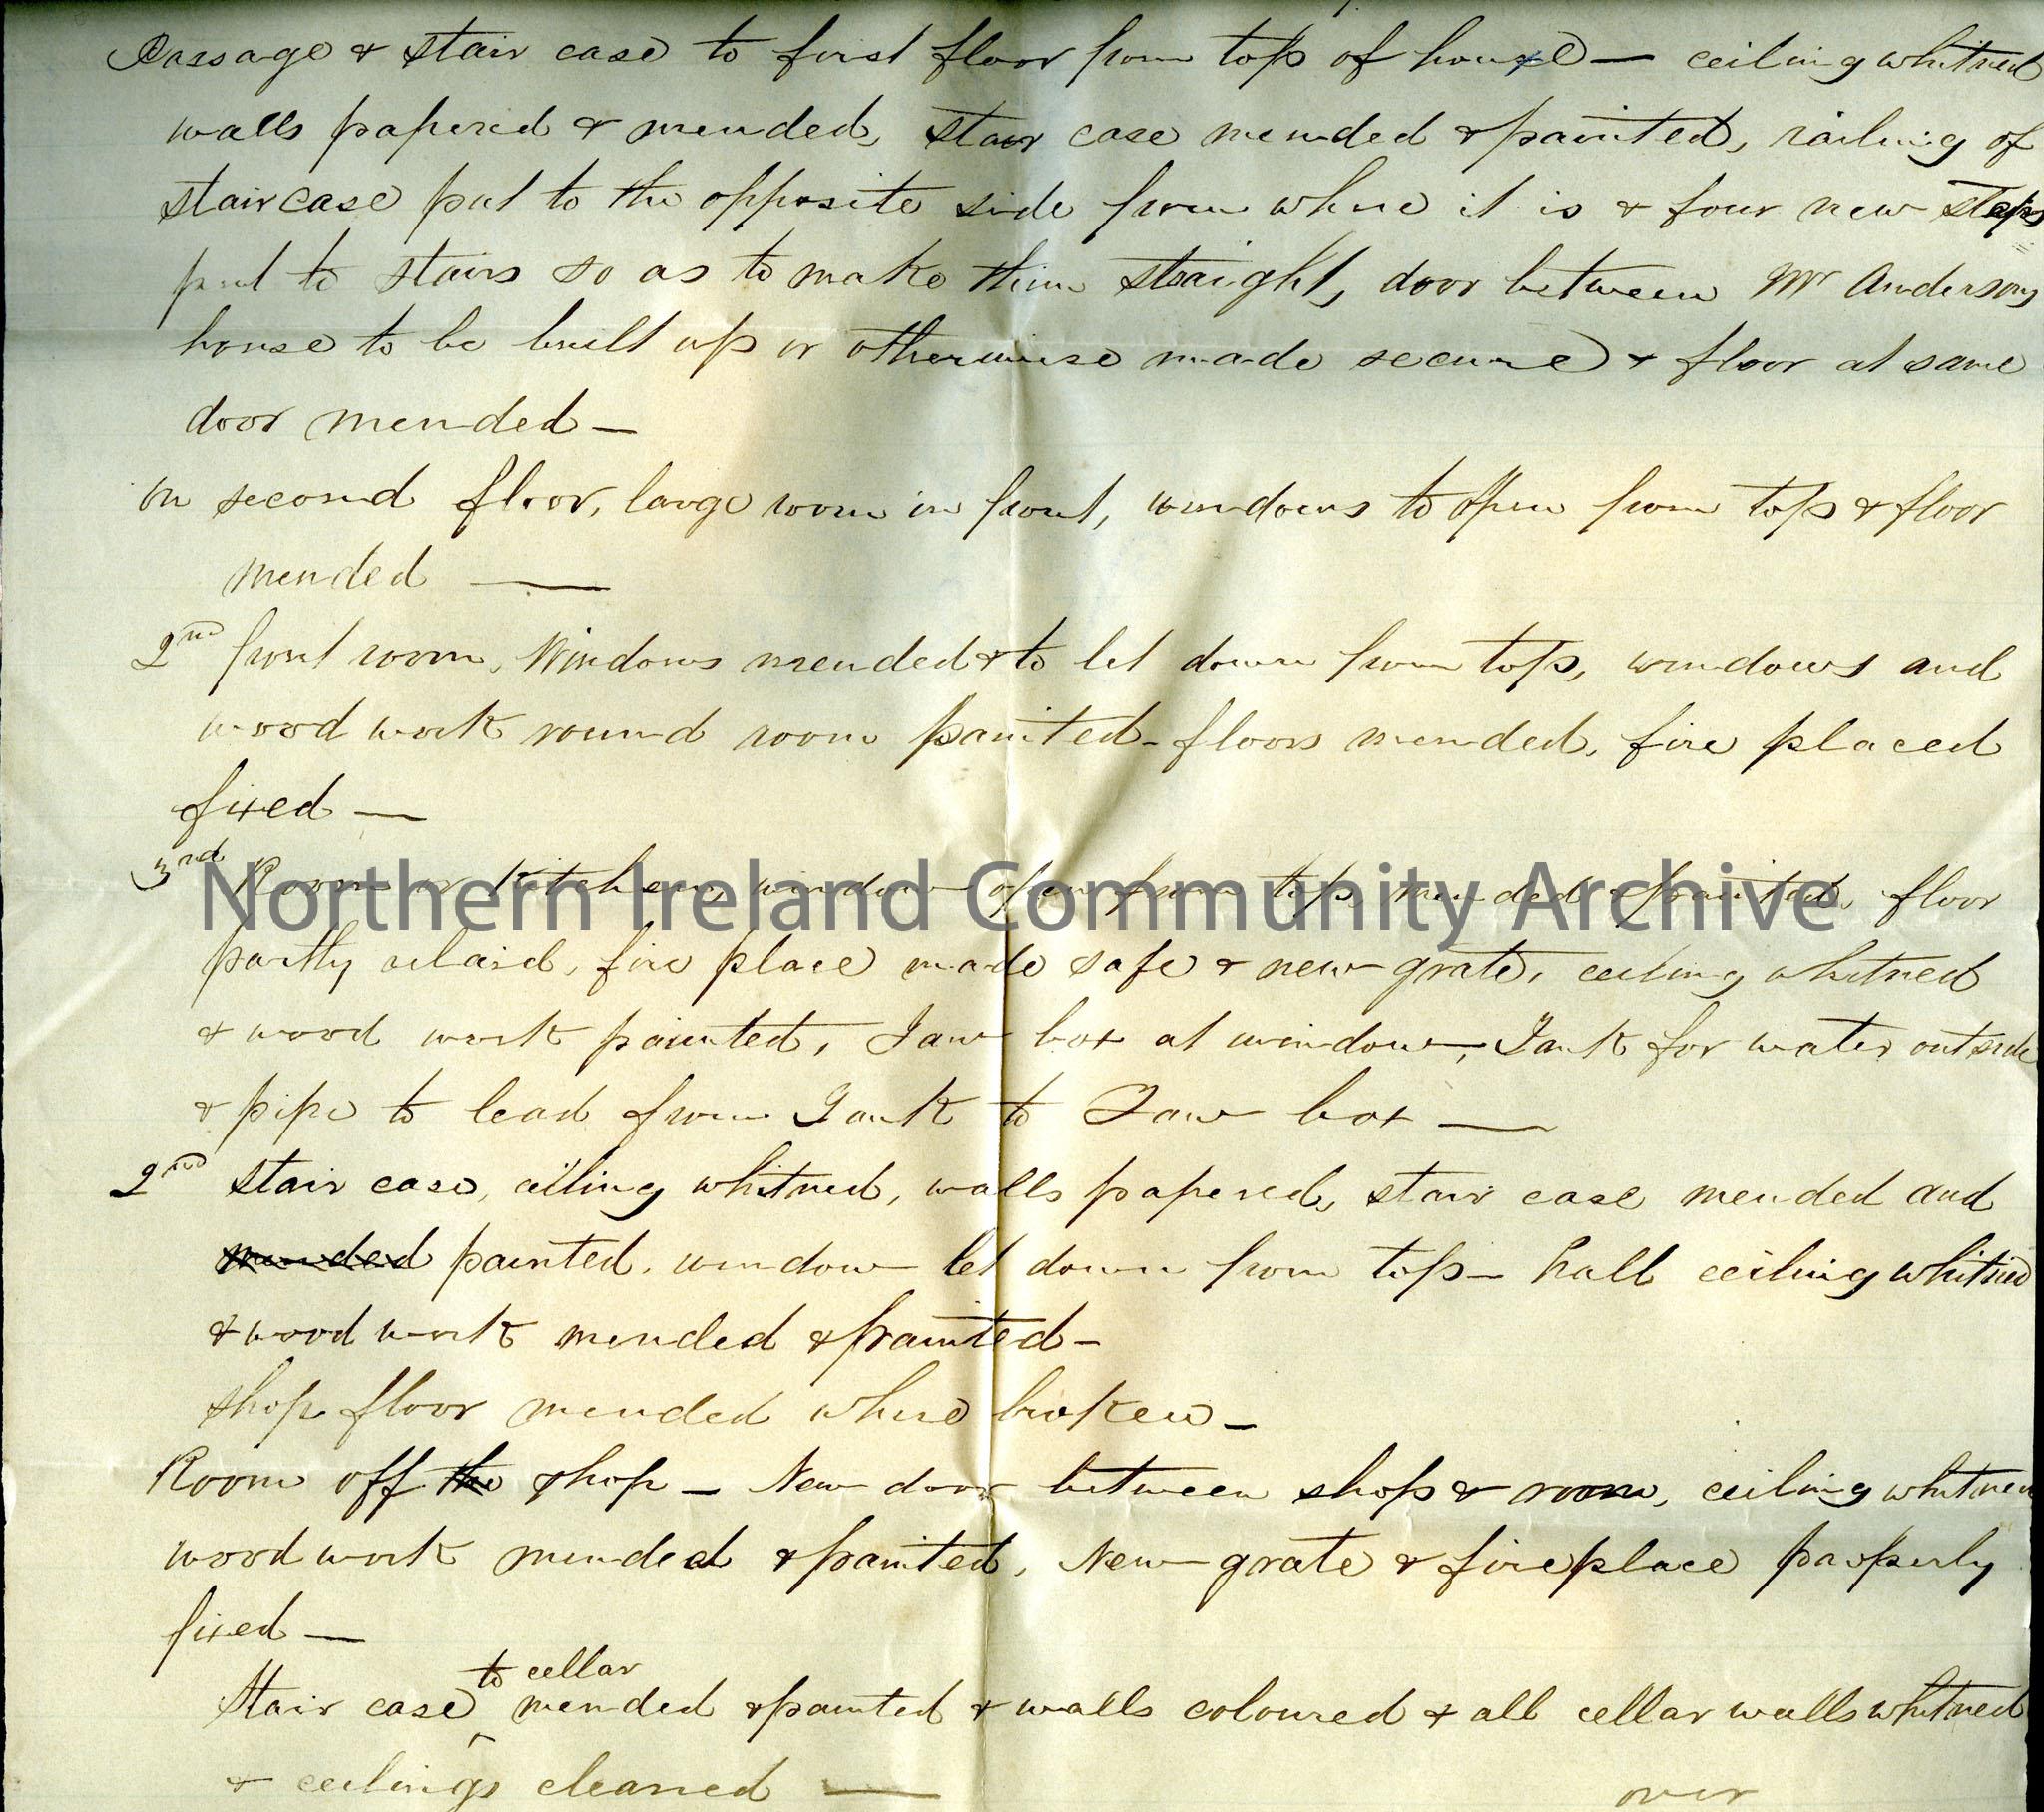 Passage & stair case to first floor from top of house — ceiling whitned
walls papered & mended, stair case mended & painted, railing of
staircase put to the opposite side from where it is & four new steps
put to stairs so as to make them straight, door between Mr Andersons
house to be built up or otherwise made secure & floor at same
door mended —
on second floor, large room in front, windows to open from top & floor
mended —
2nd front room, Windows mended & to let down from top, windows and
wood work round room painted - floors mended, fire placed
fixed —
3rd Room or Kitchen, window open from top, mended & painted, floor
Northern Ireland Community Archive
partly relaid, fire place made safe & new grate, ceiling whitned
& wood work painted, Jaw box at window, Tank for water outside
& pipe to lead from Tank to Jaw box —
2nd stair case, ceiling whitned, walls papered, stair case mended and
mended painted. window let down from top - hall ceiling whitned
& wood work mended & painted -
shop floor mended where broken -
Room off the shop - New door between shop & room, ceiling whitned
wood work mended & painted, New grate & fireplace properly
fixed —
to cellar
Stair case mended & painted & walls coloured & all cellar walls whitned
& ceilings cleaned —
over